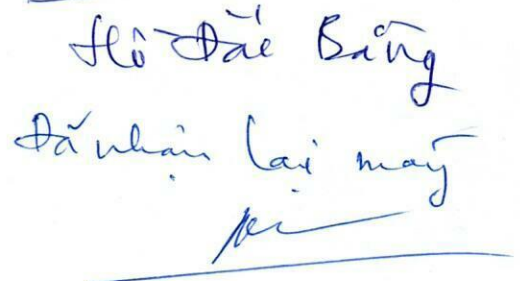 Hồ Đắc Bằng
Đã nhận lại máy